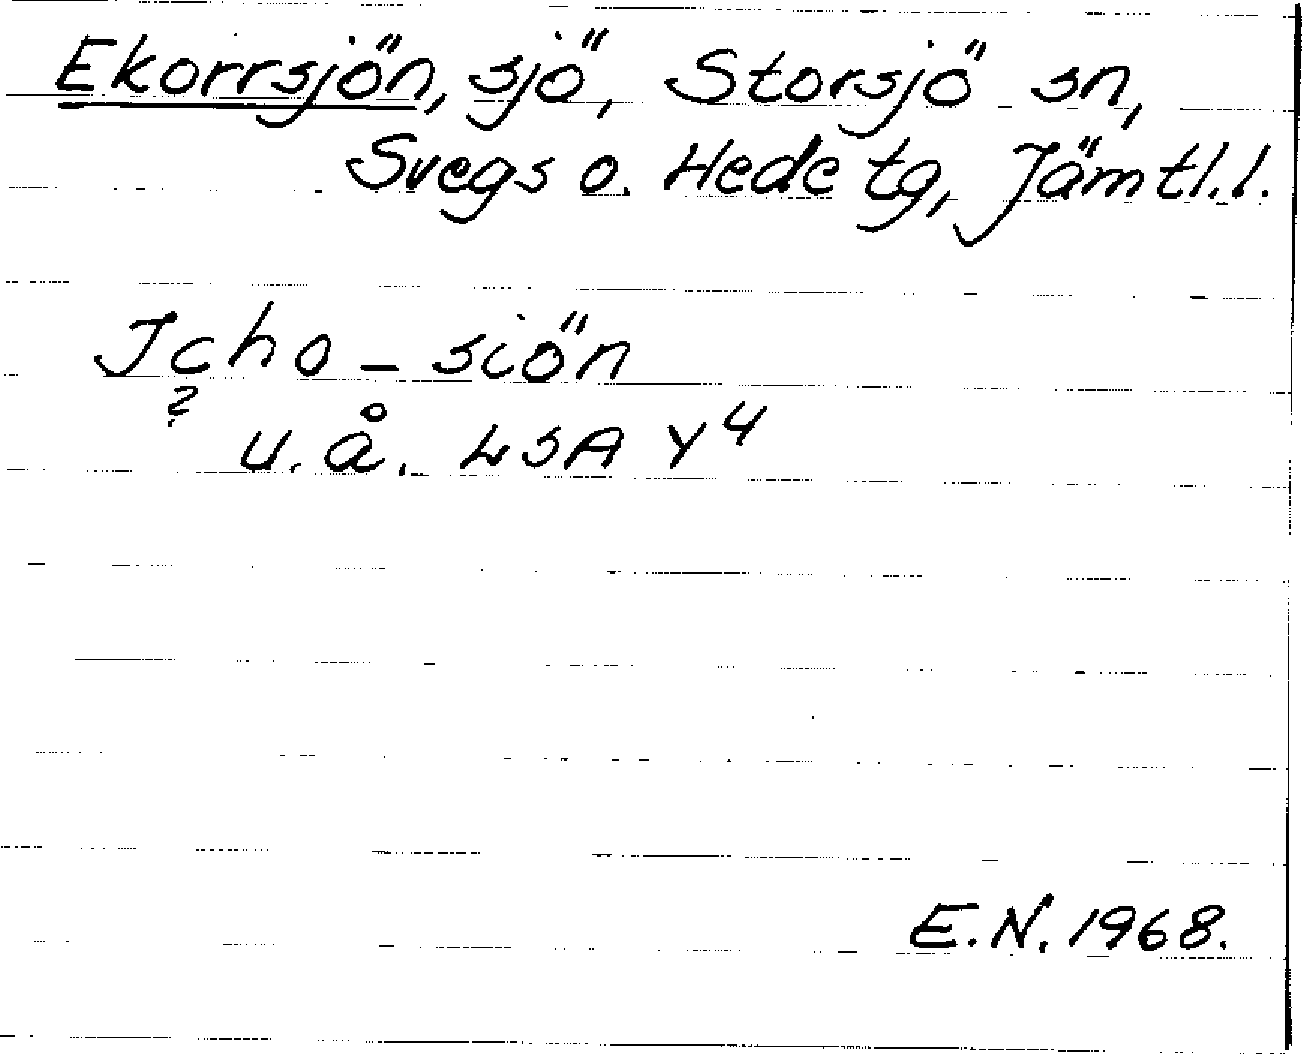 Ekorrsjön, sjö, Storsjö sn,
Svegs o. Hede tg, Jämtl.l.
Jcho - siön
?
u.å. LSA Y4
E.N. 1968.